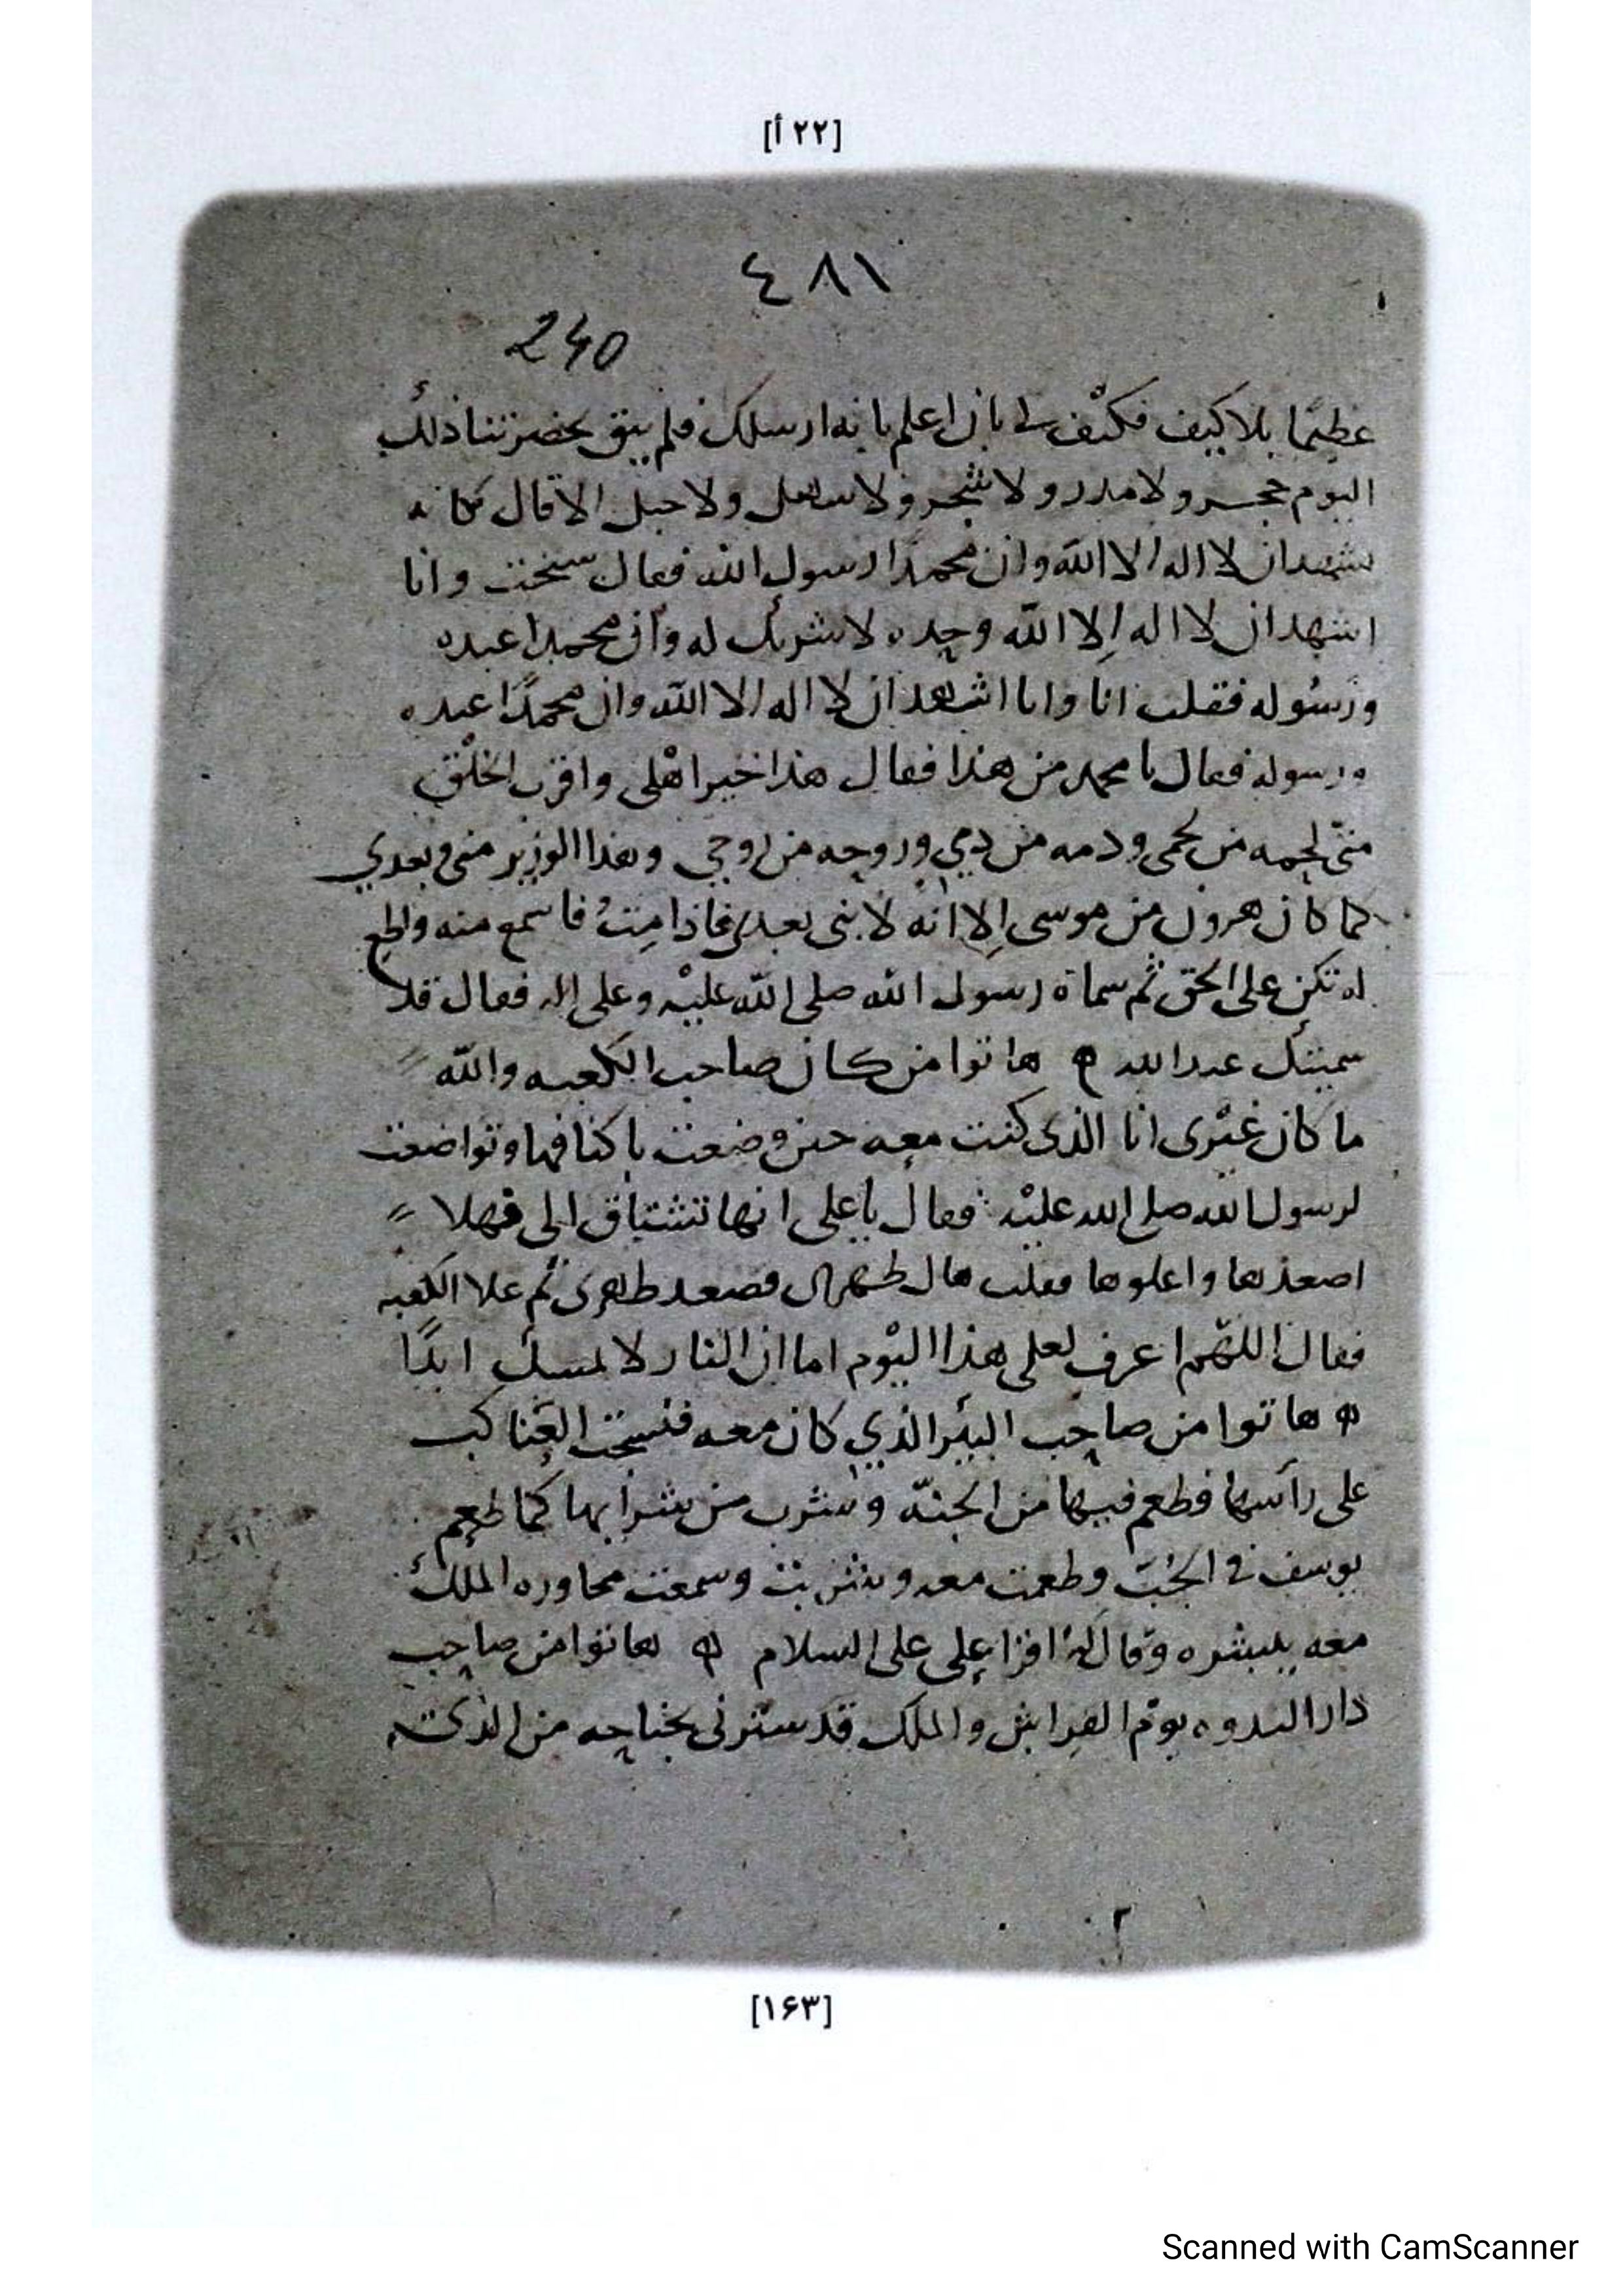 [٢٢ أ]
٤٨١
240
عظيمًا بلا كيف فكيّف لي بان اعلم بانه ارسلك فلم يبق بحضرتنا ذلك
اليوم حجر ولا مدر ولا شجر ولا سهل ولا جبل الا قال مكانه
نشهد ان لا اله الا الله وان محمدًا رسول الله فقال سبخت وانا
اشهد ان لا اله إلا الله وحده لا شريك له وأن محمدا عبده
ورسُوله فقلت انا وانا اشهد ان لا اله الا الله وان محمدًا عبده
ورسوله فقال يا محمد من هذا فقال هذا خير اهلى واقرب الخلق
منّى لحمه من لحمى ودمه من دمي وروحه من روحي وهذا الوزير منى وبعدي
كما كان هرون من موسى إلا انه لا نبى بعدى فاذا مِتُ فاسمع منه واطع
له تكن على الحق ثم سماه رسول الله صلى الله عليه وعلى اله فقال قد
سميتك عبد الله ه هاتوا من كان صاحب الكعبه والله
ما كان غيرى انا الذى كنت معه حين وضعت باكنافها وتواضعت
لرسول الله صلى الله عليه فقال يا علي انها تشتاق الى فهلا
اصعدها واعلوها فقلت هاك ظهرى فصعد ظهرى ثم علا الكعبه
فقال اللهم اعرف لعلى هذا اليوم اما ان النار لا تمسك ابدًا
ه هاتوا من صاحب البئر الذي كان معه فنسجت العناكب
على رأسها فطعم فيها من الجنّه وشرب من شرابها كما طعم
يوسف في الجُبّ وطعمت معه وشربت وسمعت محاوره الملك
معه يبشره وقال له اقرا على علي السلام ه هاتوا من صاحب
دار الندوه يوم الفراش والملك قد سترنى بجناحه من الذى
[١۶٣]
Scanned with CamScanner